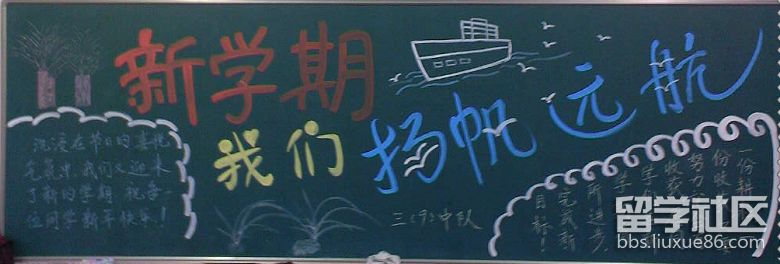 新学期
我们扬帆远航
沉浸在节日的喜悦
气氛中,我们又迎来
了新的学期,祝各
位同学新年快乐!
三(9)中队
一份耕
份收
努力
收获
学
所进步
完成新
目标!
留学社区
bbs.liuxue86.com